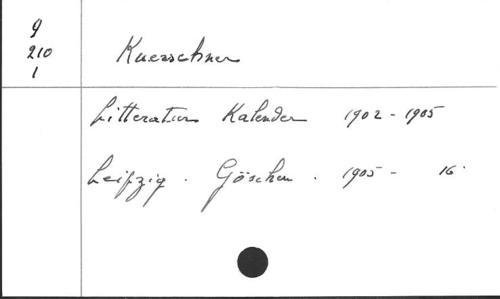 9
210
1
Kuerschner
Litteratur Kalender 1902 - 1905
Leipzig . Göschen . 1905 - 16